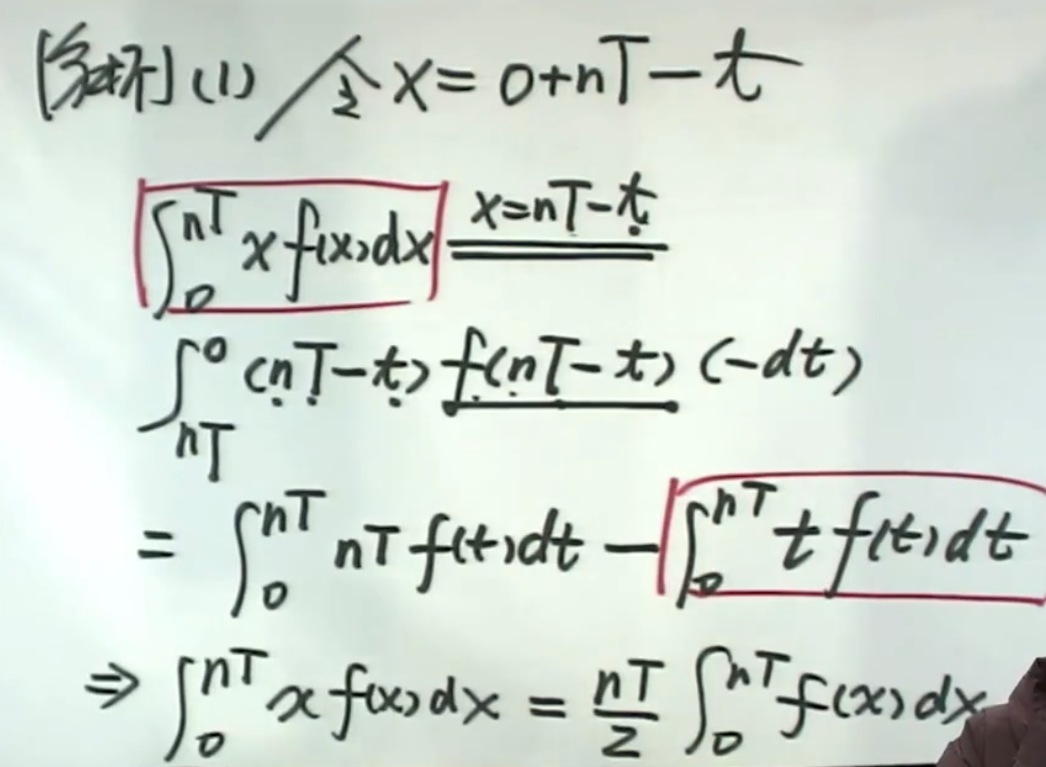 [解析] (1) 令 x = 0+nT-t
∫₀ⁿᵀ x f(x) dx x=nT-t
∫ₙₜ⁰ (nT-t) f(nT-t) (-dt)
= ∫₀ⁿᵀ nT f(t) dt - ∫₀ⁿᵀ t f(t) dt
⇒ ∫₀ⁿᵀ x f(x) dx = nT/2 ∫₀ⁿᵀ f(x) dx